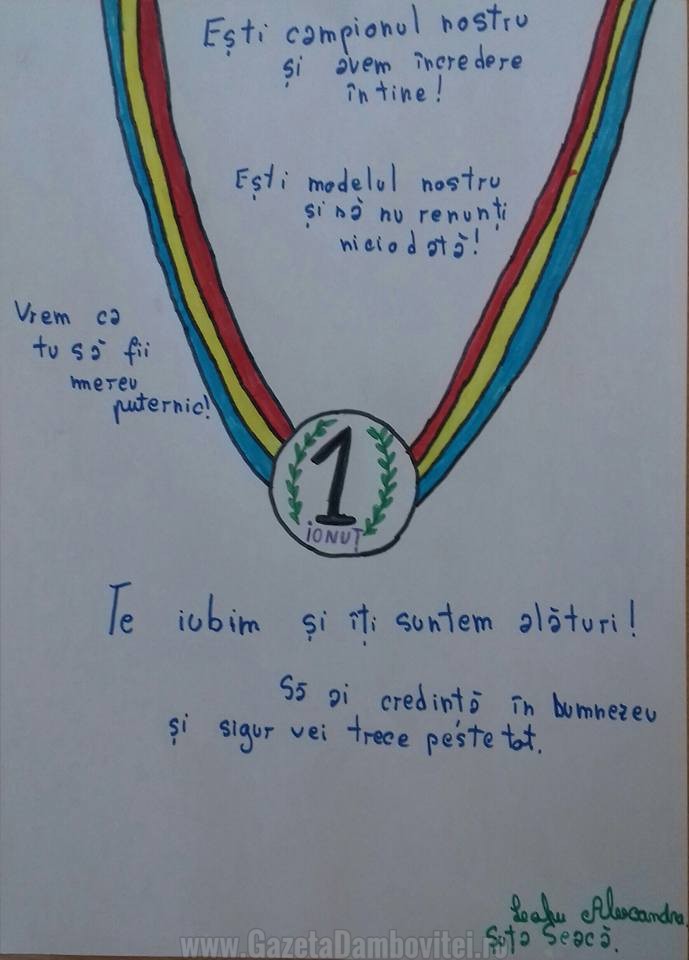 Ești campionul nostru
și avem încredere
în tine!
Ești modelul nostru
și să nu renunți
niciodată!
Vrem ca
tu să fii
mereu
puternic!
1
IONUȚ
Te iubim și îți suntem alături!
Să ai credință în Dumnezeu
și sigur vei trece peste tot.
Alexandra
Șuța Seacă.
www.GazetaDambovitei.ro